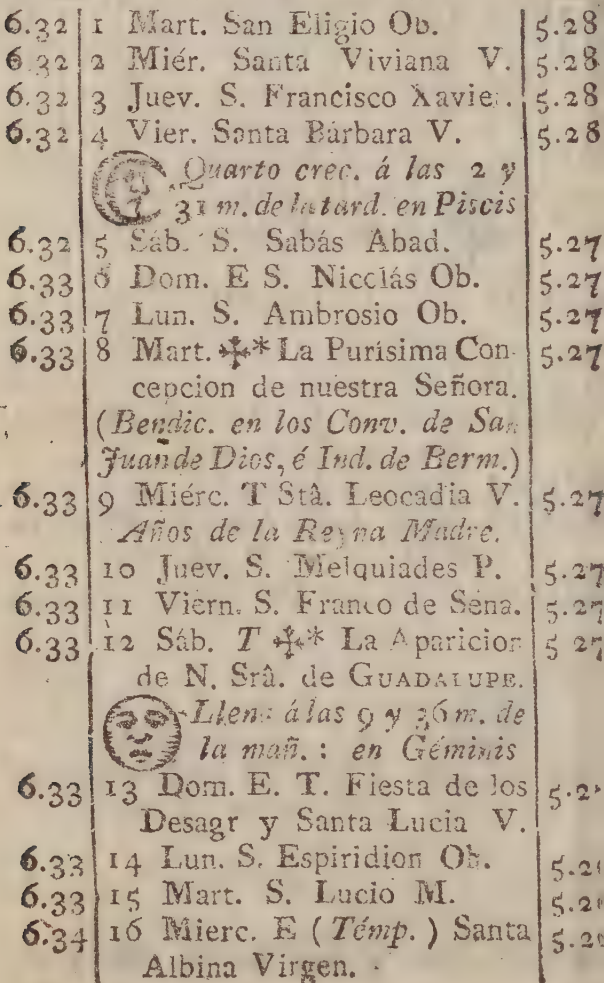 6.32 1 Mart. San Eligio Ob. 5.28
6.32 2 Miér. Santa Viviana V. 5.28
6.32 3 Juev. S. Francisco Xavie. 5.28
6.32 4 Vier. Santa Bárbara V. 5.28
Quarto crec. á las 2 y
31 m. de la tard. en Piscis
6.32 5 Sáb. S. Sabás Abad. 5.27
6.33 6 Dom. E S. Nicolás Ob. 5.27
6.33 7 Lun. S. Ambrosio Ob. 5.27
6.33 8 Mart. ✠* La Purísima Con- 5.27
cepcion de nuestra Señora.
(Bendic. en los Conv. de San
Juan de Dios, é Ind. de Berm.)
6.33 9 Miérc. T Stâ. Leocadia V. 5.27
Años de la Reyna Madre.
6.33 10 Juev. S. Melquiades P. 5.27
6.33 11 Viern. S. Franco de Sena. 5.27
6.33 12 Sáb. T ✠* La Aparicion 5 27
de N. Srâ. de GUADALUPE.
Llena á las 9 y 36 m. de
la mañ. : en Géminis
6.33 13 Dom. E. T. Fiesta de los
Desagr y Santa Lucia V.
6.33 14 Lun. S. Espiridion Ob.
6.33 15 Mart. S. Lucio M.
6.34 16 Mierc. E (Témp.) Santa
Albina Virgen.